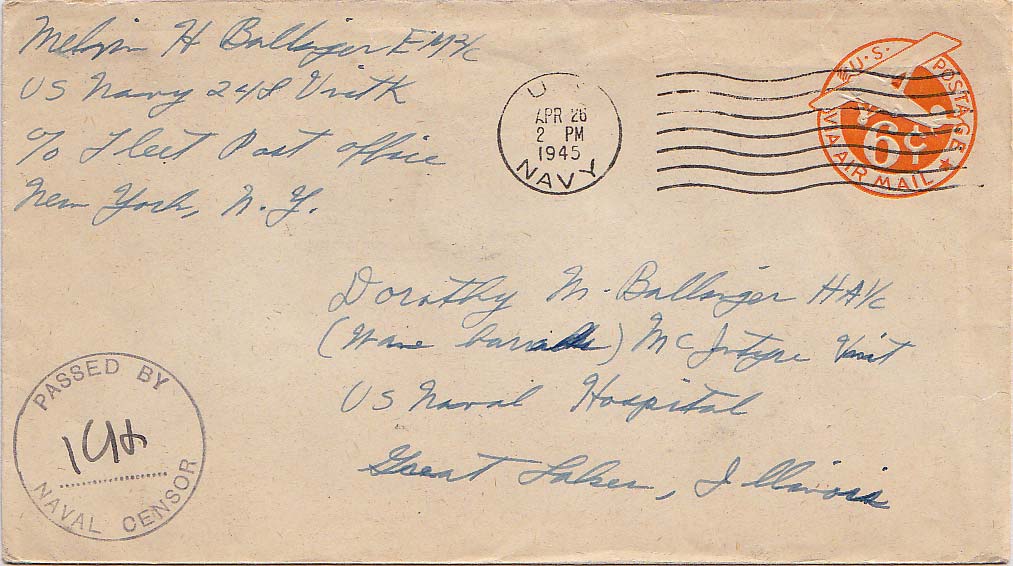 Melvin H Ballinger EM2/c
US Navy 248 Unit K
c/o Fleet Post Office
New York, N.Y.
U
APR 26
2 PM
1945
NAVY
U.S. POSTAGE
6¢
VIA AIR MAIL
Dorothy M. Ballinger HA1/c
(Wave barracks) McIntyre Unit
US Naval Hospital
Great Lakes, Illinois
PASSED BY
NAVAL CENSOR